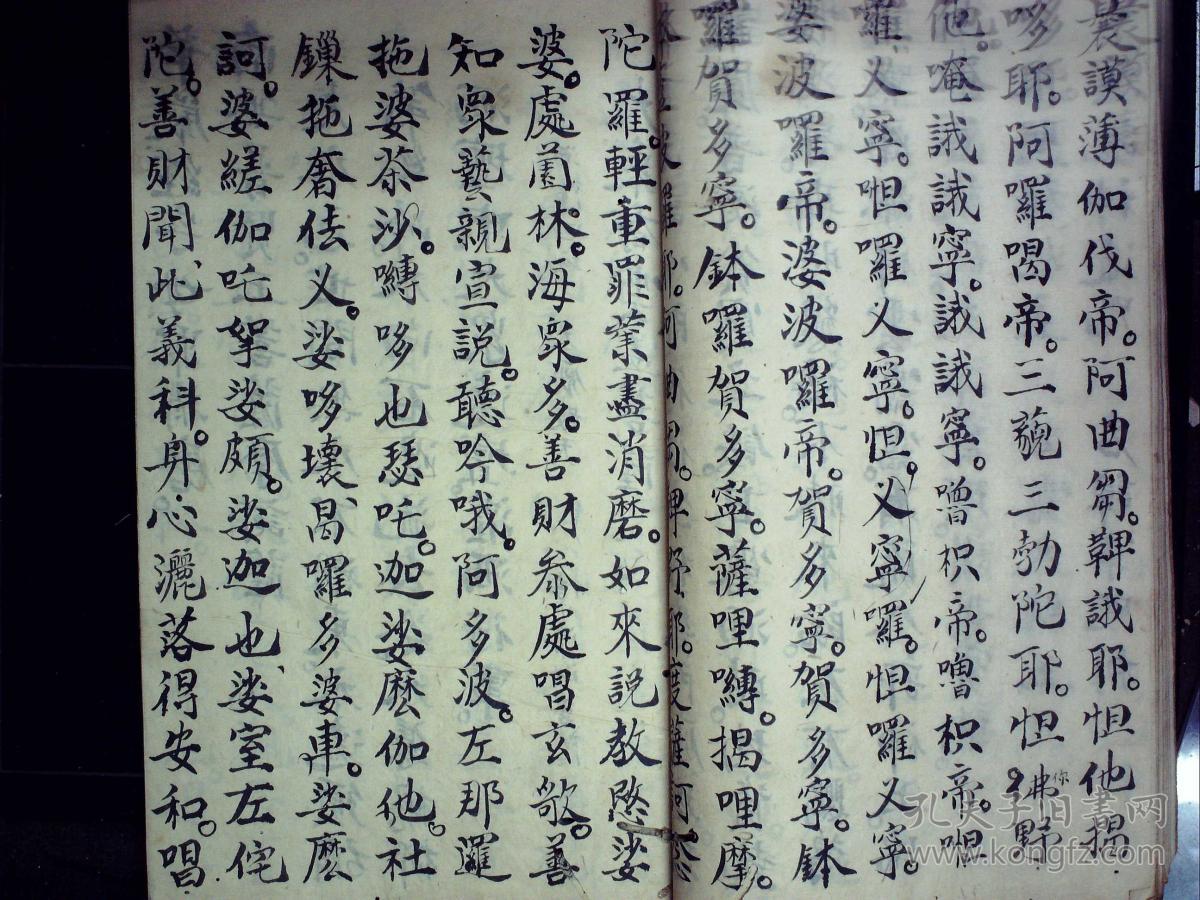 曩謨薄伽伐帝。阿曲芻。鞞誐耶。怛他揭
哆耶。阿囉喝帝。三藐三勃陀耶。怛你
他。唵誐誐寧。誐誐寧。嚕枳帝。嚕枳帝。呾
囉、义寧。呾囉义寧。怛、义寧囉。怛囉义寧。
婆波囉帝。婆波囉帝。賀多寧。賀多寧。鉢
囉賀多寧。鉢囉賀多寧。薩哩嚩。揭哩摩。
陀羅。輕重罪業盡消磨。如來說教愍娑
婆。處園林。海眾多。善財叅處唱玄敬。善
知眾藝親宣說。聽吟哦。阿多波。左那邏
拖婆茶沙。嚩哆也瑟吒。迦娑麼伽他。社
鏁拖奢佉义。娑哆壞、曷囉多婆車。娑麼
訶。婆縒伽吒拏娑頗。娑迦也、娑室左侘
陀。善財聞此、義科。身心灑落得安和。唱
孔夫子旧書网
www.kongfz.com